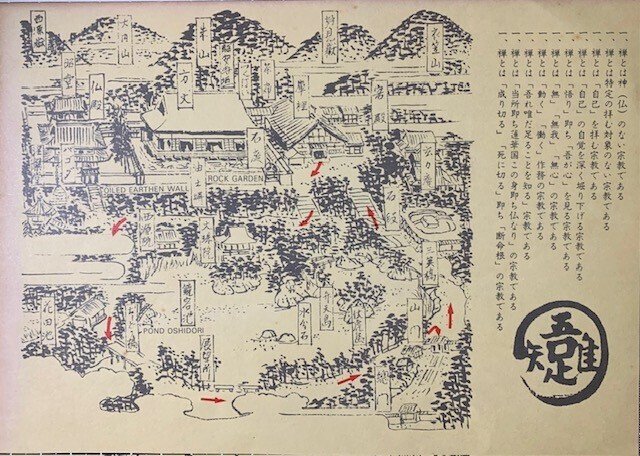 一、禅とは神(仏)のない宗教である
一、禅とは特定の拝む対象のない宗教である
一、禅とは「自己」を拝む宗教である
一、禅とは「自己」の自覚を深く掘り下げる宗教である
一、禅とは「悟り」即ち「吾が心」を見る宗教である
一、禅とは「無」「無我」「無心」の宗教である
一、禅とは「動く」「働く」作務の宗教である
一、禅とは「吾れ唯だ足ることを知る」宗教である
一、禅とは「当所即ち蓮華国この身即ち仏なり」の宗教である
一、禅とは「成り切る」「死に切る」即ち「断命根」の宗教である
吾唯足知
西東嶽
衣笠山
仏殿
方丈
庫裡
石庭
ROCK GARDEN
油土塀
OILED EARTHEN WALL
西源院
鏡容池
POND OSHIDORI
水分石
弁天島
山門